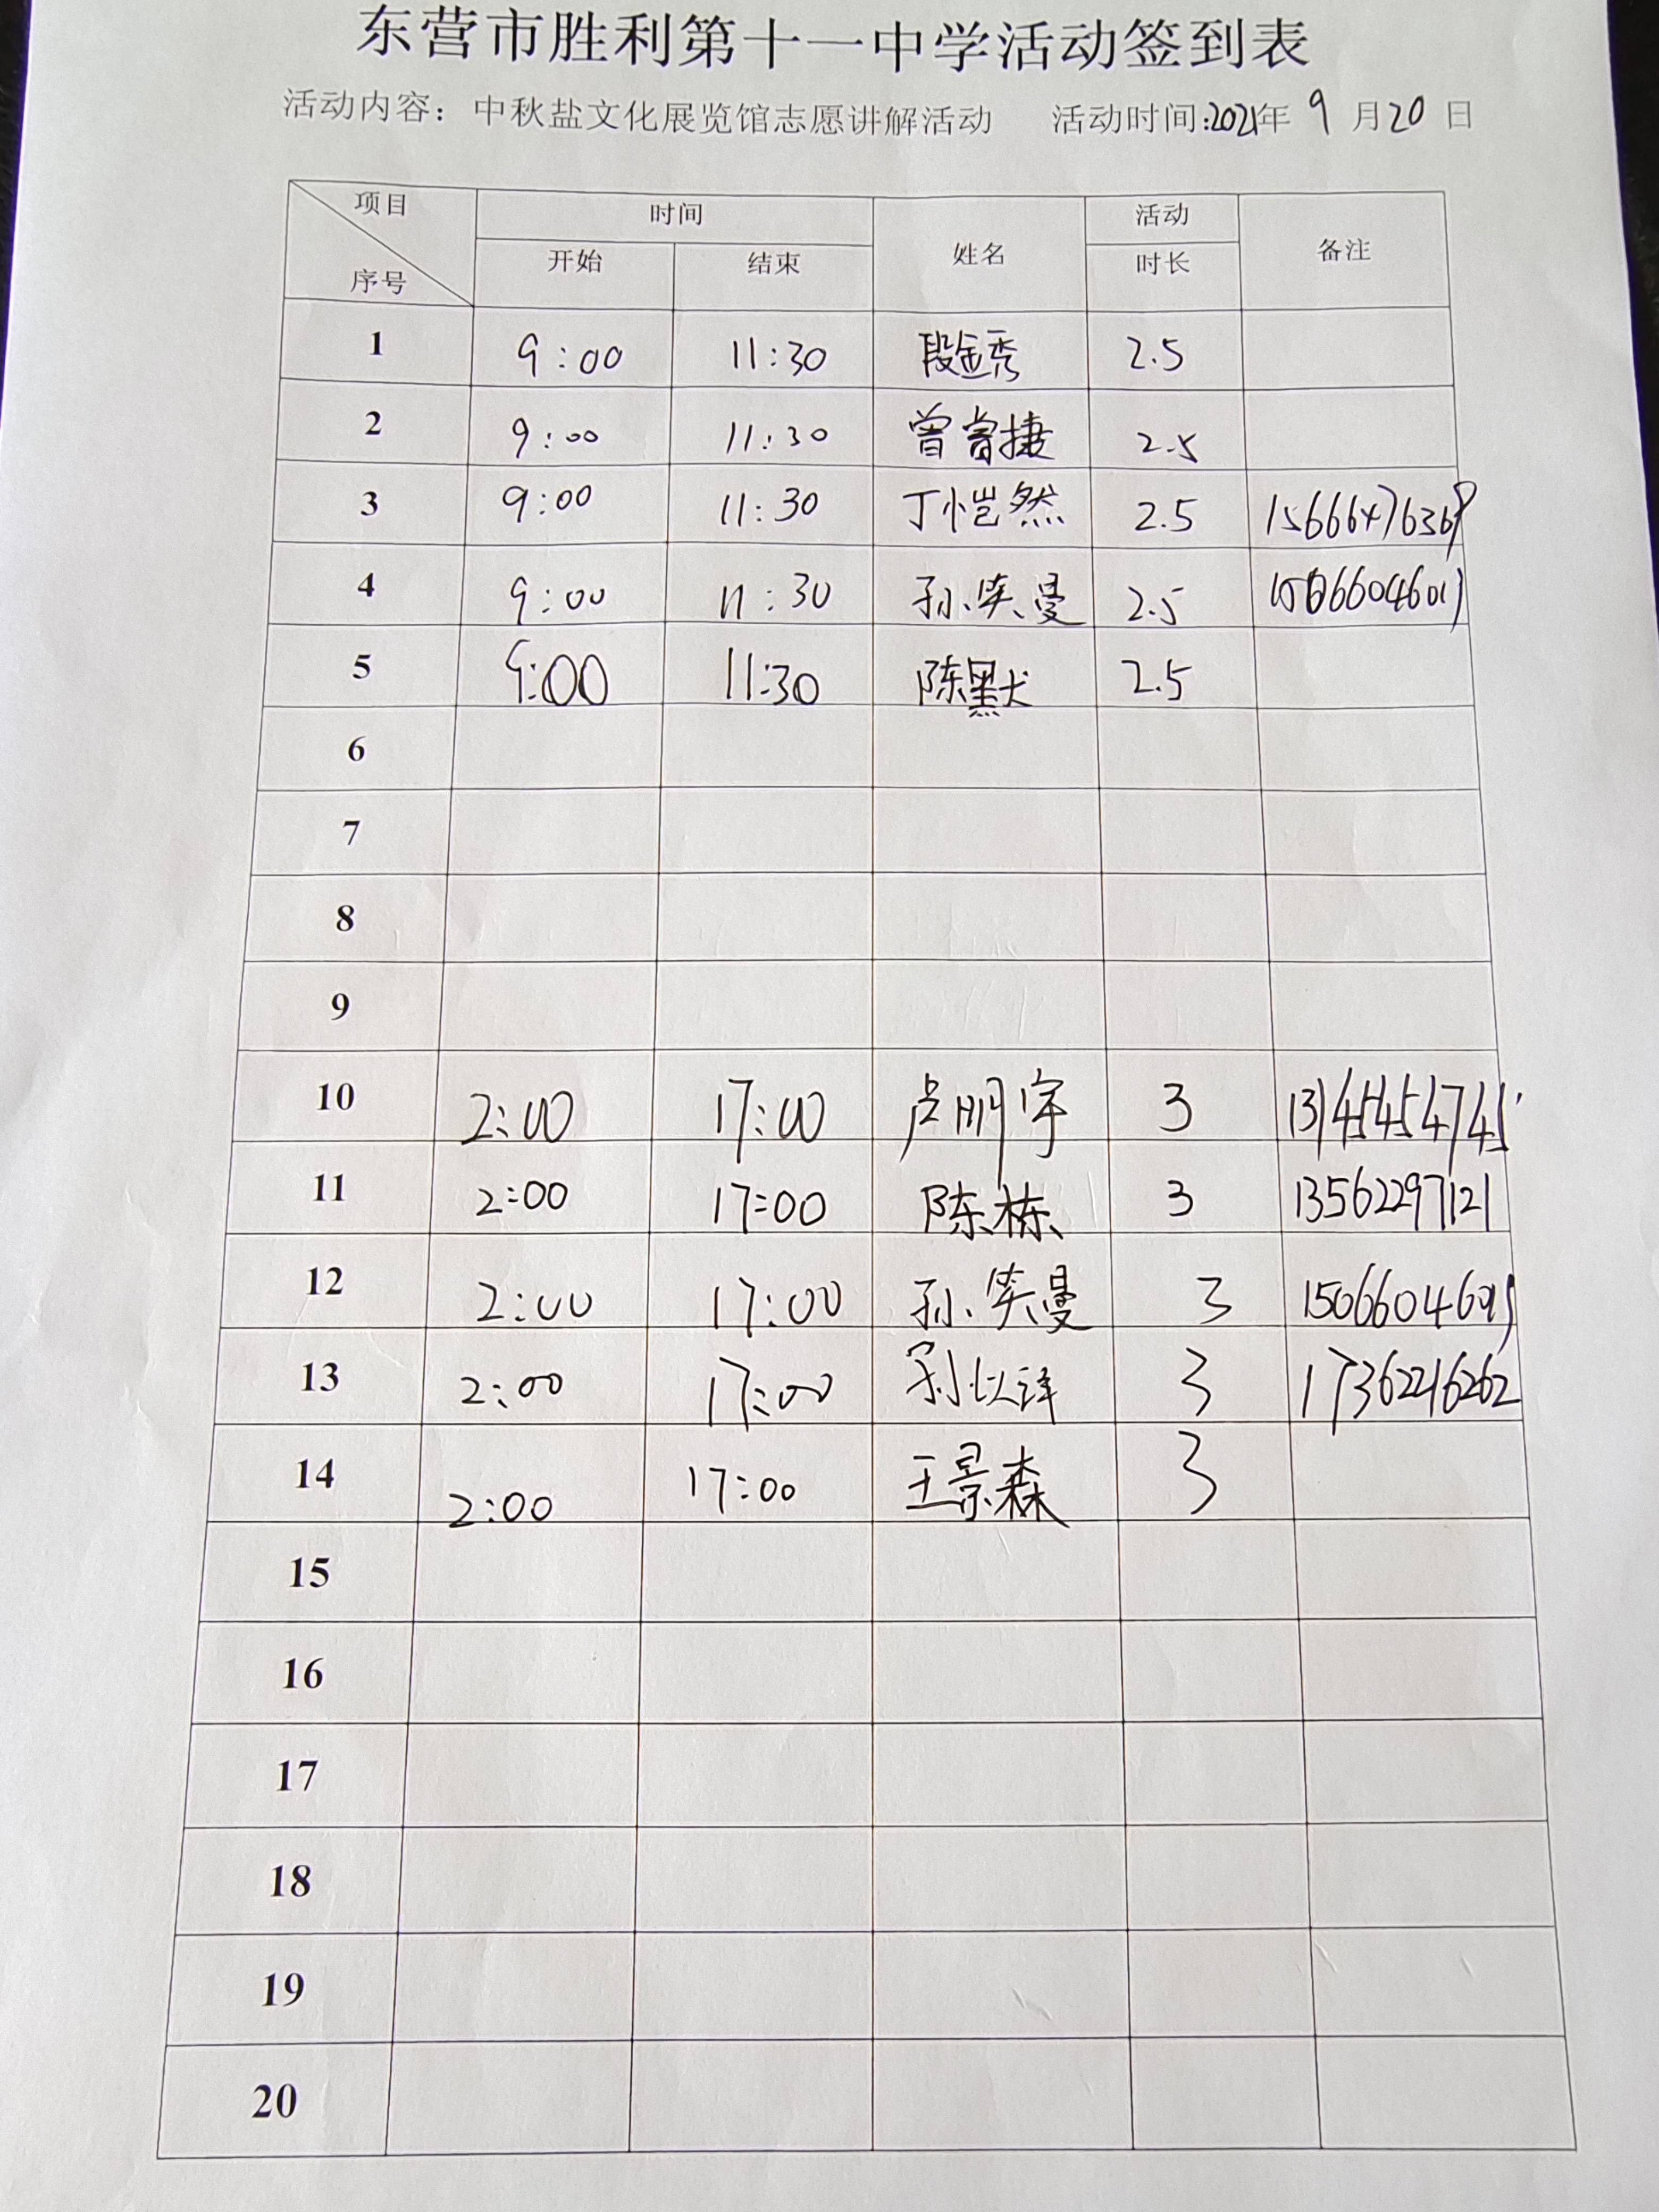 东营市胜利第十一中学活动签到表
活动内容：中秋盐文化展览馆志愿讲解活动 活动时间:2021年 9 月20 日
项目 时间 姓名 活动 备注
序号 开始 结束 时长
1 9:00 11:30 段金秀 2.5
2 9:00 11:30 曾 捷 2.5
3 9:00 11:30 丁恺然 2.5
4 9:00 11:30 孙奕曼 2.5
5 9:00 11:30 陈默 2.5
6
7
8
9
10 2:00 17:00 卢明宇 3
11 2:00 17:00 陈栋 3 13562297121
12 2:00 17:00 孙奕曼 3
13 2:00 17:00 3
14 2:00 17:00 王景森 3
15
16
17
18
19
20